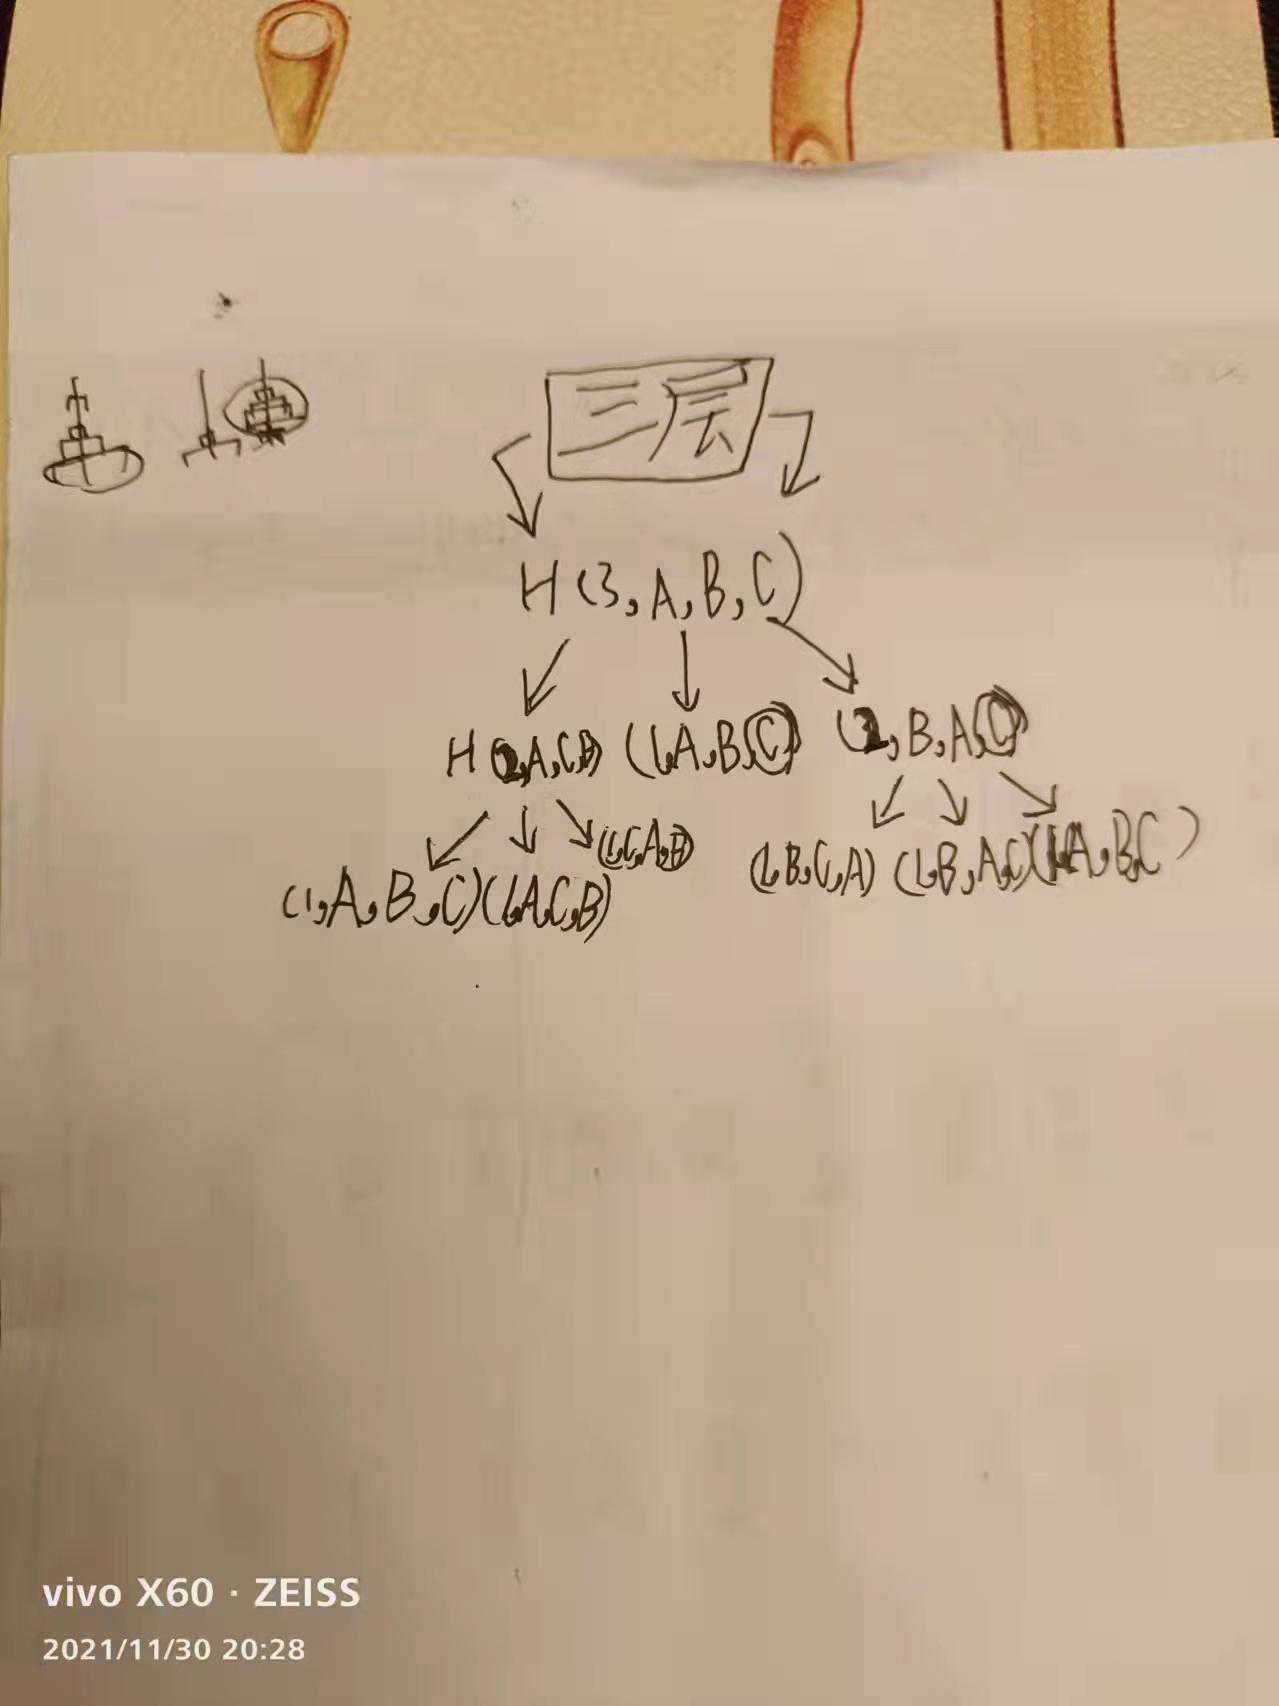 三层
H(3,A,B,C)
H(2,A,C,B) (1,A,B,C) (2,B,A,C)
(1,A,B,C)(1,A,C,B) (1,C,A,B) (1,B,C,A) (1,B,A,C)(1,A,B,C)
vivo X60 · ZEISS
2021/11/30 20:28